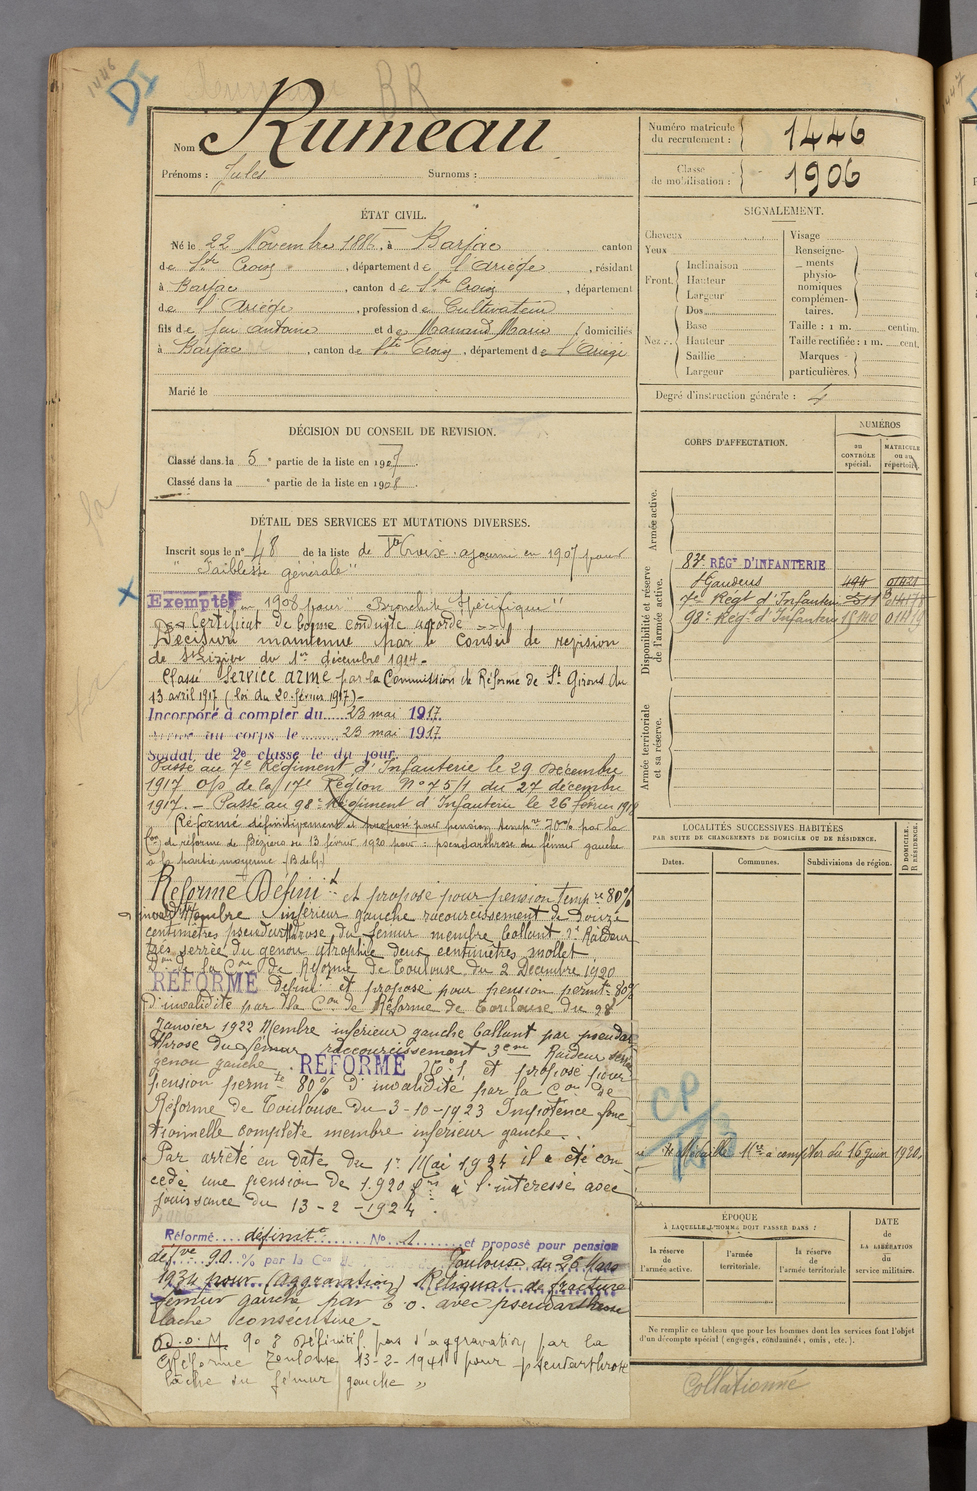 1446
D
RR
Nom : Rumeau
Prénoms : Jules Surnoms :
Numéro matricule du recrutement : 1446
Classe de mobilisation : 1906
ÉTAT CIVIL.
Né le 22 Novembre 1886, à Barjac canton
de Ste Croix, département de l'Ariège, résidant
à Barjac, canton de Ste Croix, département
de l'Ariège, profession de Cultivateur
fils de feu Antoine et de Marie domiciliés
à Barjac, canton de Ste Croix, département de l'Ariège
Marié le
SIGNALEMENT.
Cheveux
Yeux
Front. Inclinaison
Hauteur
Largeur
Nez. Dos
Base
Hauteur
Saillie
Largeur
Visage
Renseigne-
ments
physio-
nomiques
complémen-
taires.
Taille : 1 m. centim.
Taille rectifiée : 1 m. cent.
Marques
particulières.
Degré d'instruction générale : 4
DÉCISION DU CONSEIL DE REVISION.
Classé dans la 5e partie de la liste en 1907.
Classé dans la e partie de la liste en 1908.
DÉTAIL DES SERVICES ET MUTATIONS DIVERSES.
Inscrit sous le n° 48 de la liste de Ste Croix. ajourné en 1907 pour
"Faiblesse générale"
Exempté en 1908 pour "Bronchite spécifique"
Certificat de bonne conduite accordé
Décision maintenue par le Conseil de revision
de St Lizier du 1er décembre 1914.
Classé service armé par la Commission de Réforme de St Girons du
13 avril 1917 (loi du 20 février 1917).
Incorporé à compter du 23 mai 1917.
Arrivé au corps le 23 mai 1917.
Soldat de 2e classe le du jour.
Passé au 7e Régiment d'Infanterie le 29 Décembre
1917 o/s de la 17e Région N° 75/1 du 27 décembre
1917. - Passé au 98e Régiment d'Infanterie le 26 février 1918
Réformé définitivement et proposé pour pension temp re 70% par la
Con de réforme de Béziers du 13 février 1920 pour : pseudarthrose du fémur gauche
à la partie moyenne. (B de G.)
Réformé Définit t et proposé pour pension temp re 80%
d'invalidité Membre inférieur gauche raccourcissement de douze
centimètres pseudarthrose du fémur membre ballant 2° Raideur
très serrée du genou atrophie deux centimètres mollet
Don de la Con de Réforme de Toulouse du 2 Décembre 1920
RÉFORMÉ Définit t et proposé pour pension perm te 80%
d'invalidité par la Con de Réforme de Toulouse du 28
Janvier 1922 Membre inférieur gauche ballant par pseudar
throse du fémur raccourcissement 3 cm Raideur serrée
genou gauche. RÉFORMÉ N° 1 et proposé pour
pension perm te 80% d'invalidité par la Con de
Réforme de Toulouse du 3-10-1923 Impotence fonc
tionnelle complète membre inférieur gauche.
Par arrêté en date du 1er Mai 1924 il a été con
cédé une pension de 1.920 frs à l'intéressé avec
jouissance du 13-2-1924.
Réformé définit t N° 1 et proposé pour pension
de 90 % par la Con de Toulouse du 26 Mars
1934 pour (aggravation) Reliquat de fracture
fémur gauche par E.O. avec pseudarthrose
lâche consécutive.
90 % définitif pas d'aggravation par la
Réforme Toulouse 13-2-1941 pour pseudarthrose
lâche du fémur gauche "
CORPS D'AFFECTATION.
NUMÉROS
au CONTRÔLE spécial.
MATRICULE ou au répertoire.
Armée active.
Disponibilité et réserve de l'armée active.
83e RÉGT D'INFANTERIE
St Gaudens 494
7e Régt d'Infanterie
98e Régt d'Infanterie
Armée territoriale et sa réserve.
LOCALITÉS SUCCESSIVES HABITÉES
PAR SUITE DE CHANGEMENTS DE DOMICILE OU DE RÉSIDENCE.
Dates. Communes. Subdivisions de région.
D DOMICILE. R RÉSIDENCE.
CP
Médaille Mre à compter du 16 Juin 1920.
ÉPOQUE
À LAQUELLE L'HOMME DOIT PASSER DANS :
la réserve de l'armée active.
l'armée territoriale.
la réserve de l'armée territoriale
DATE de LA LIBÉRATION du service militaire.
Ne remplir ce tableau que pour les hommes dont les services font l'objet
d'un décompte spécial (engagés, condamnés, omis, etc.).
Collationné